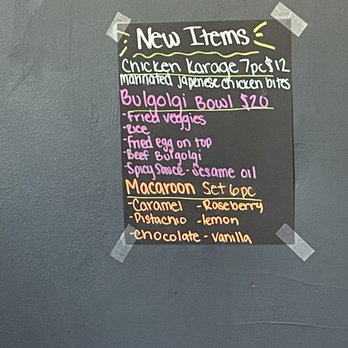 New Items
Chicken Karage 7pc $12
marinated Japenese chicken bites
Bulgolgi Bowl $20
-Fried veggies
-Rice
-Fried egg on top
-Beef Bulgolgi
-Spicy Sauce -Sesame oil
Macaroon Set 6pc
-Caramel -Raseberry
-Pistachio -lemon
-chocolate -vanilla